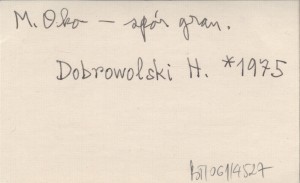 M. Oko – spór gran.
Dobrowolski H. *1975
BT106114527